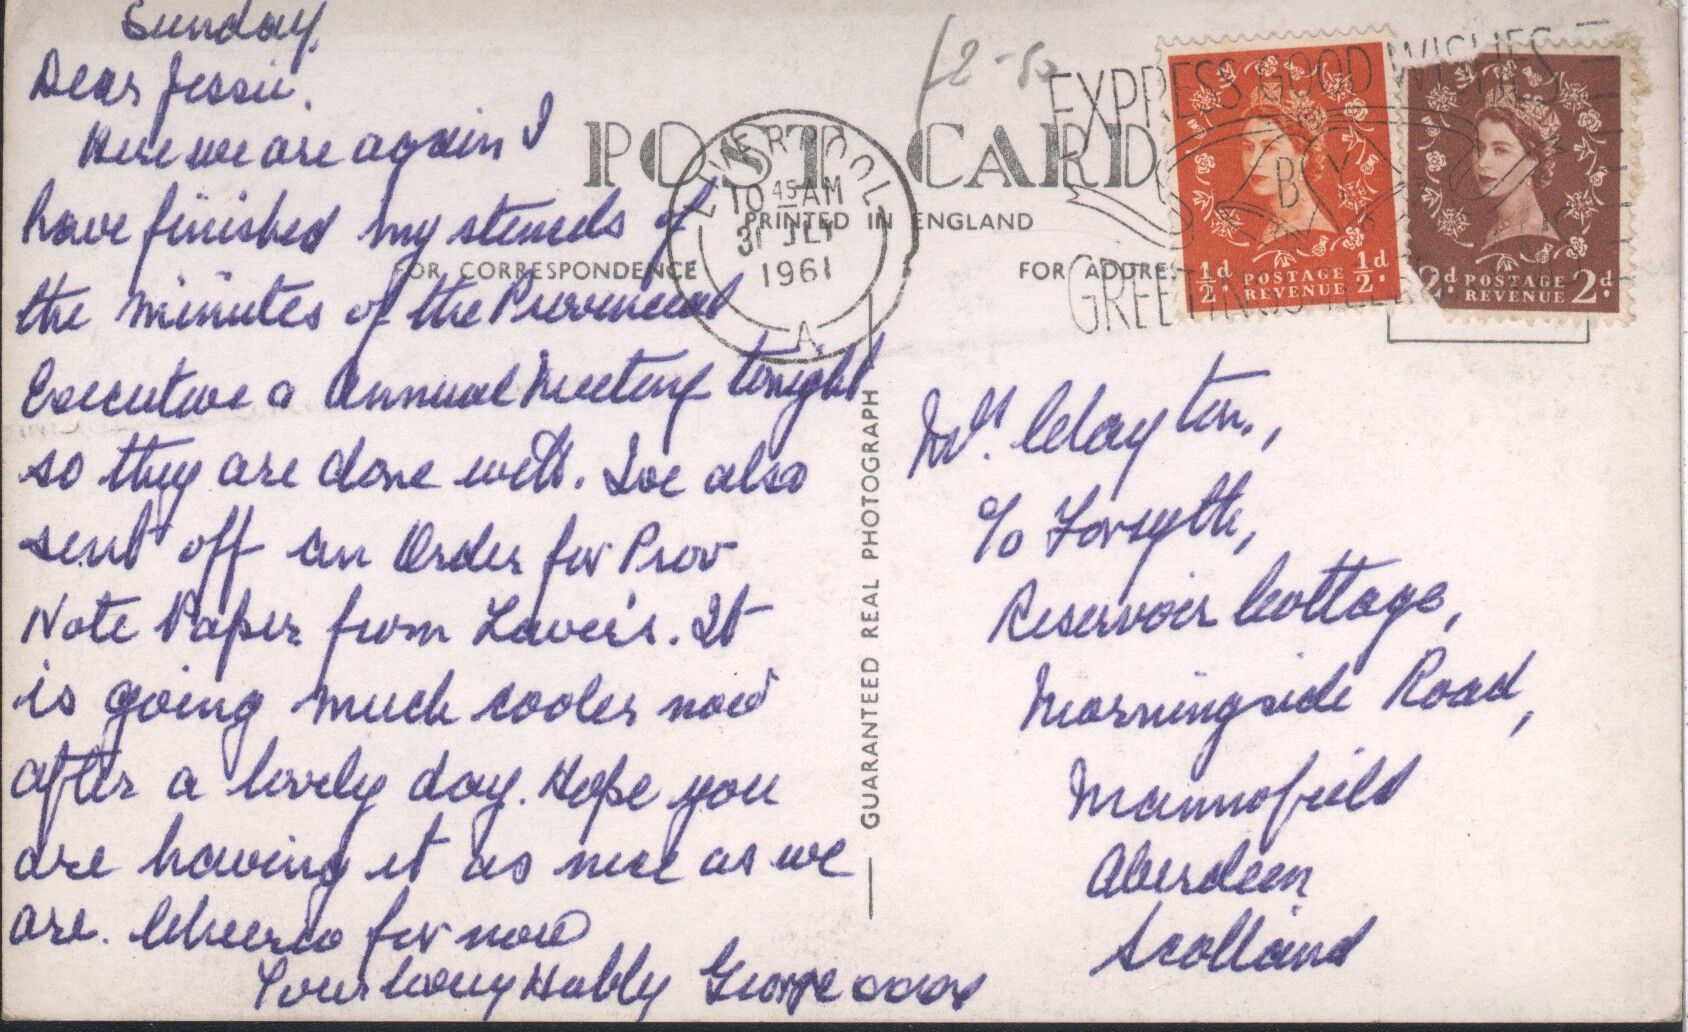 Sunday.
Dear Jessie.
Here we are again I
have finished my stencils of
the minutes of the Provincial
Executive a Annual Meeting tonight
so they are done with. Ive also
sent off an Order for Prov
Note Paper from Laver's. It
is going much cooler now
after a lovely day. Hope you
are having it as nice as we
are. Cheerio for now
Your loving Hubby George xxxxx
£2-50
POST CARD
PRINTED IN ENGLAND
FOR CORRESPONDENCE
FOR ADDRES
LIVERPOOL
10 45 AM
31 JLY
1961
A
EXPRESS GOOD WISHES
BY
GREETINGS TELE
1/2d. POSTAGE 1/2d.
REVENUE
2d. POSTAGE 2d.
REVENUE
GUARANTEED REAL PHOTOGRAPH
Mrs. Clayton,
c/o Forsyth,
Reservoir Cottage,
Morningside Road,
Mannofield
Aberdeen
Scotland